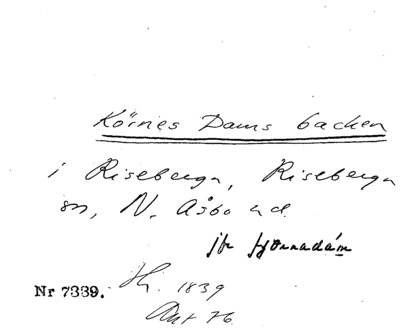 Körnes Dams backen
i Riseberga, Riseberga
sn, N. Åsbo hd.
jfr
Nr 7339.
1839
Akt 76